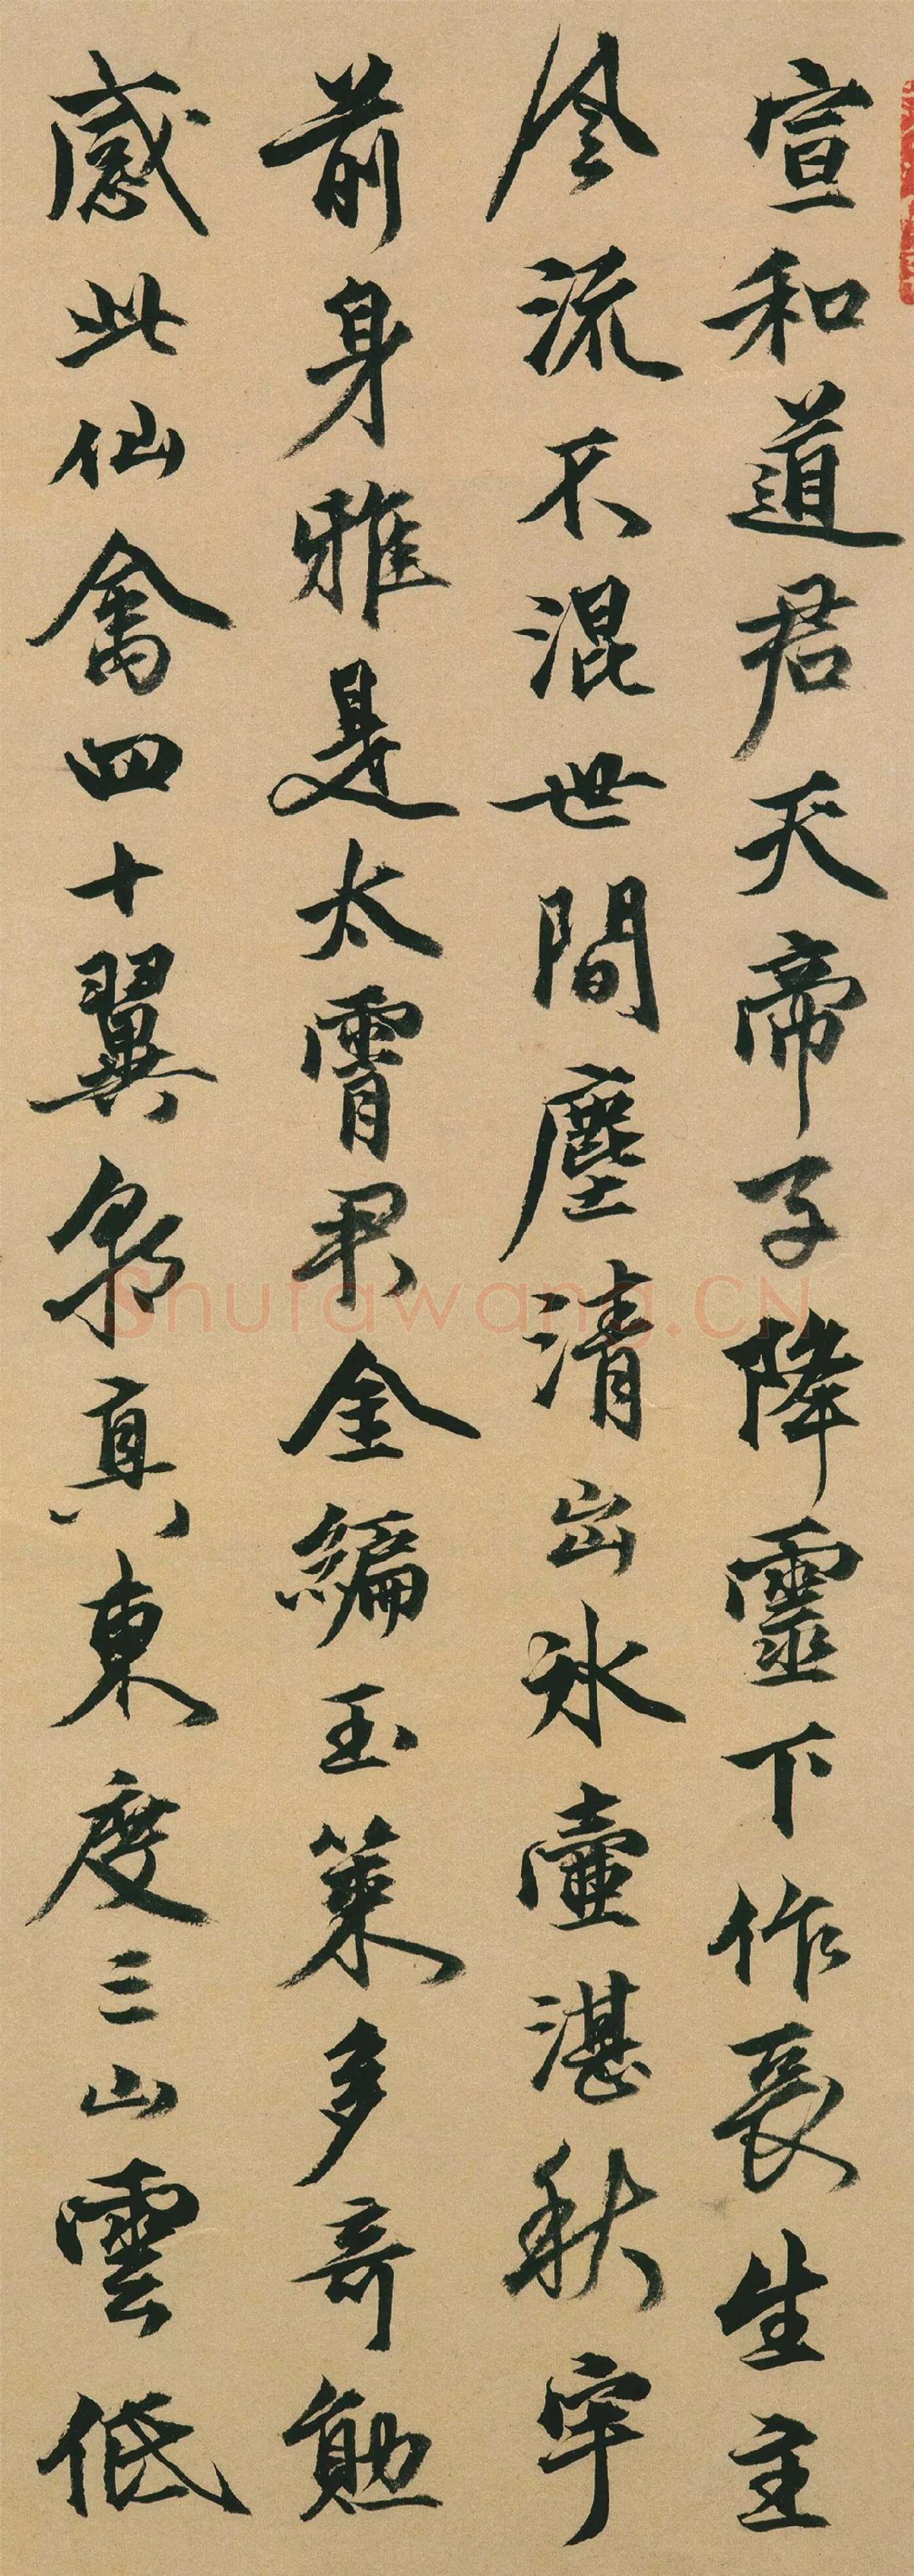 宣和道君天帝子降靈下作長生主
風流不混世間塵清出冰壺湛秋宇
前身雅是太霄君金編玉策多奇勳
感此仙禽四十翼朝真東度三山雲低
Shufawang.CN